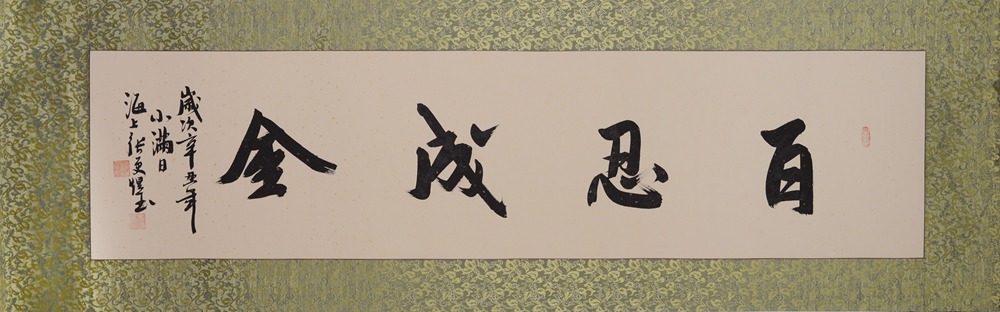 百忍成金
歲次辛丑年
小滿日
海上張更